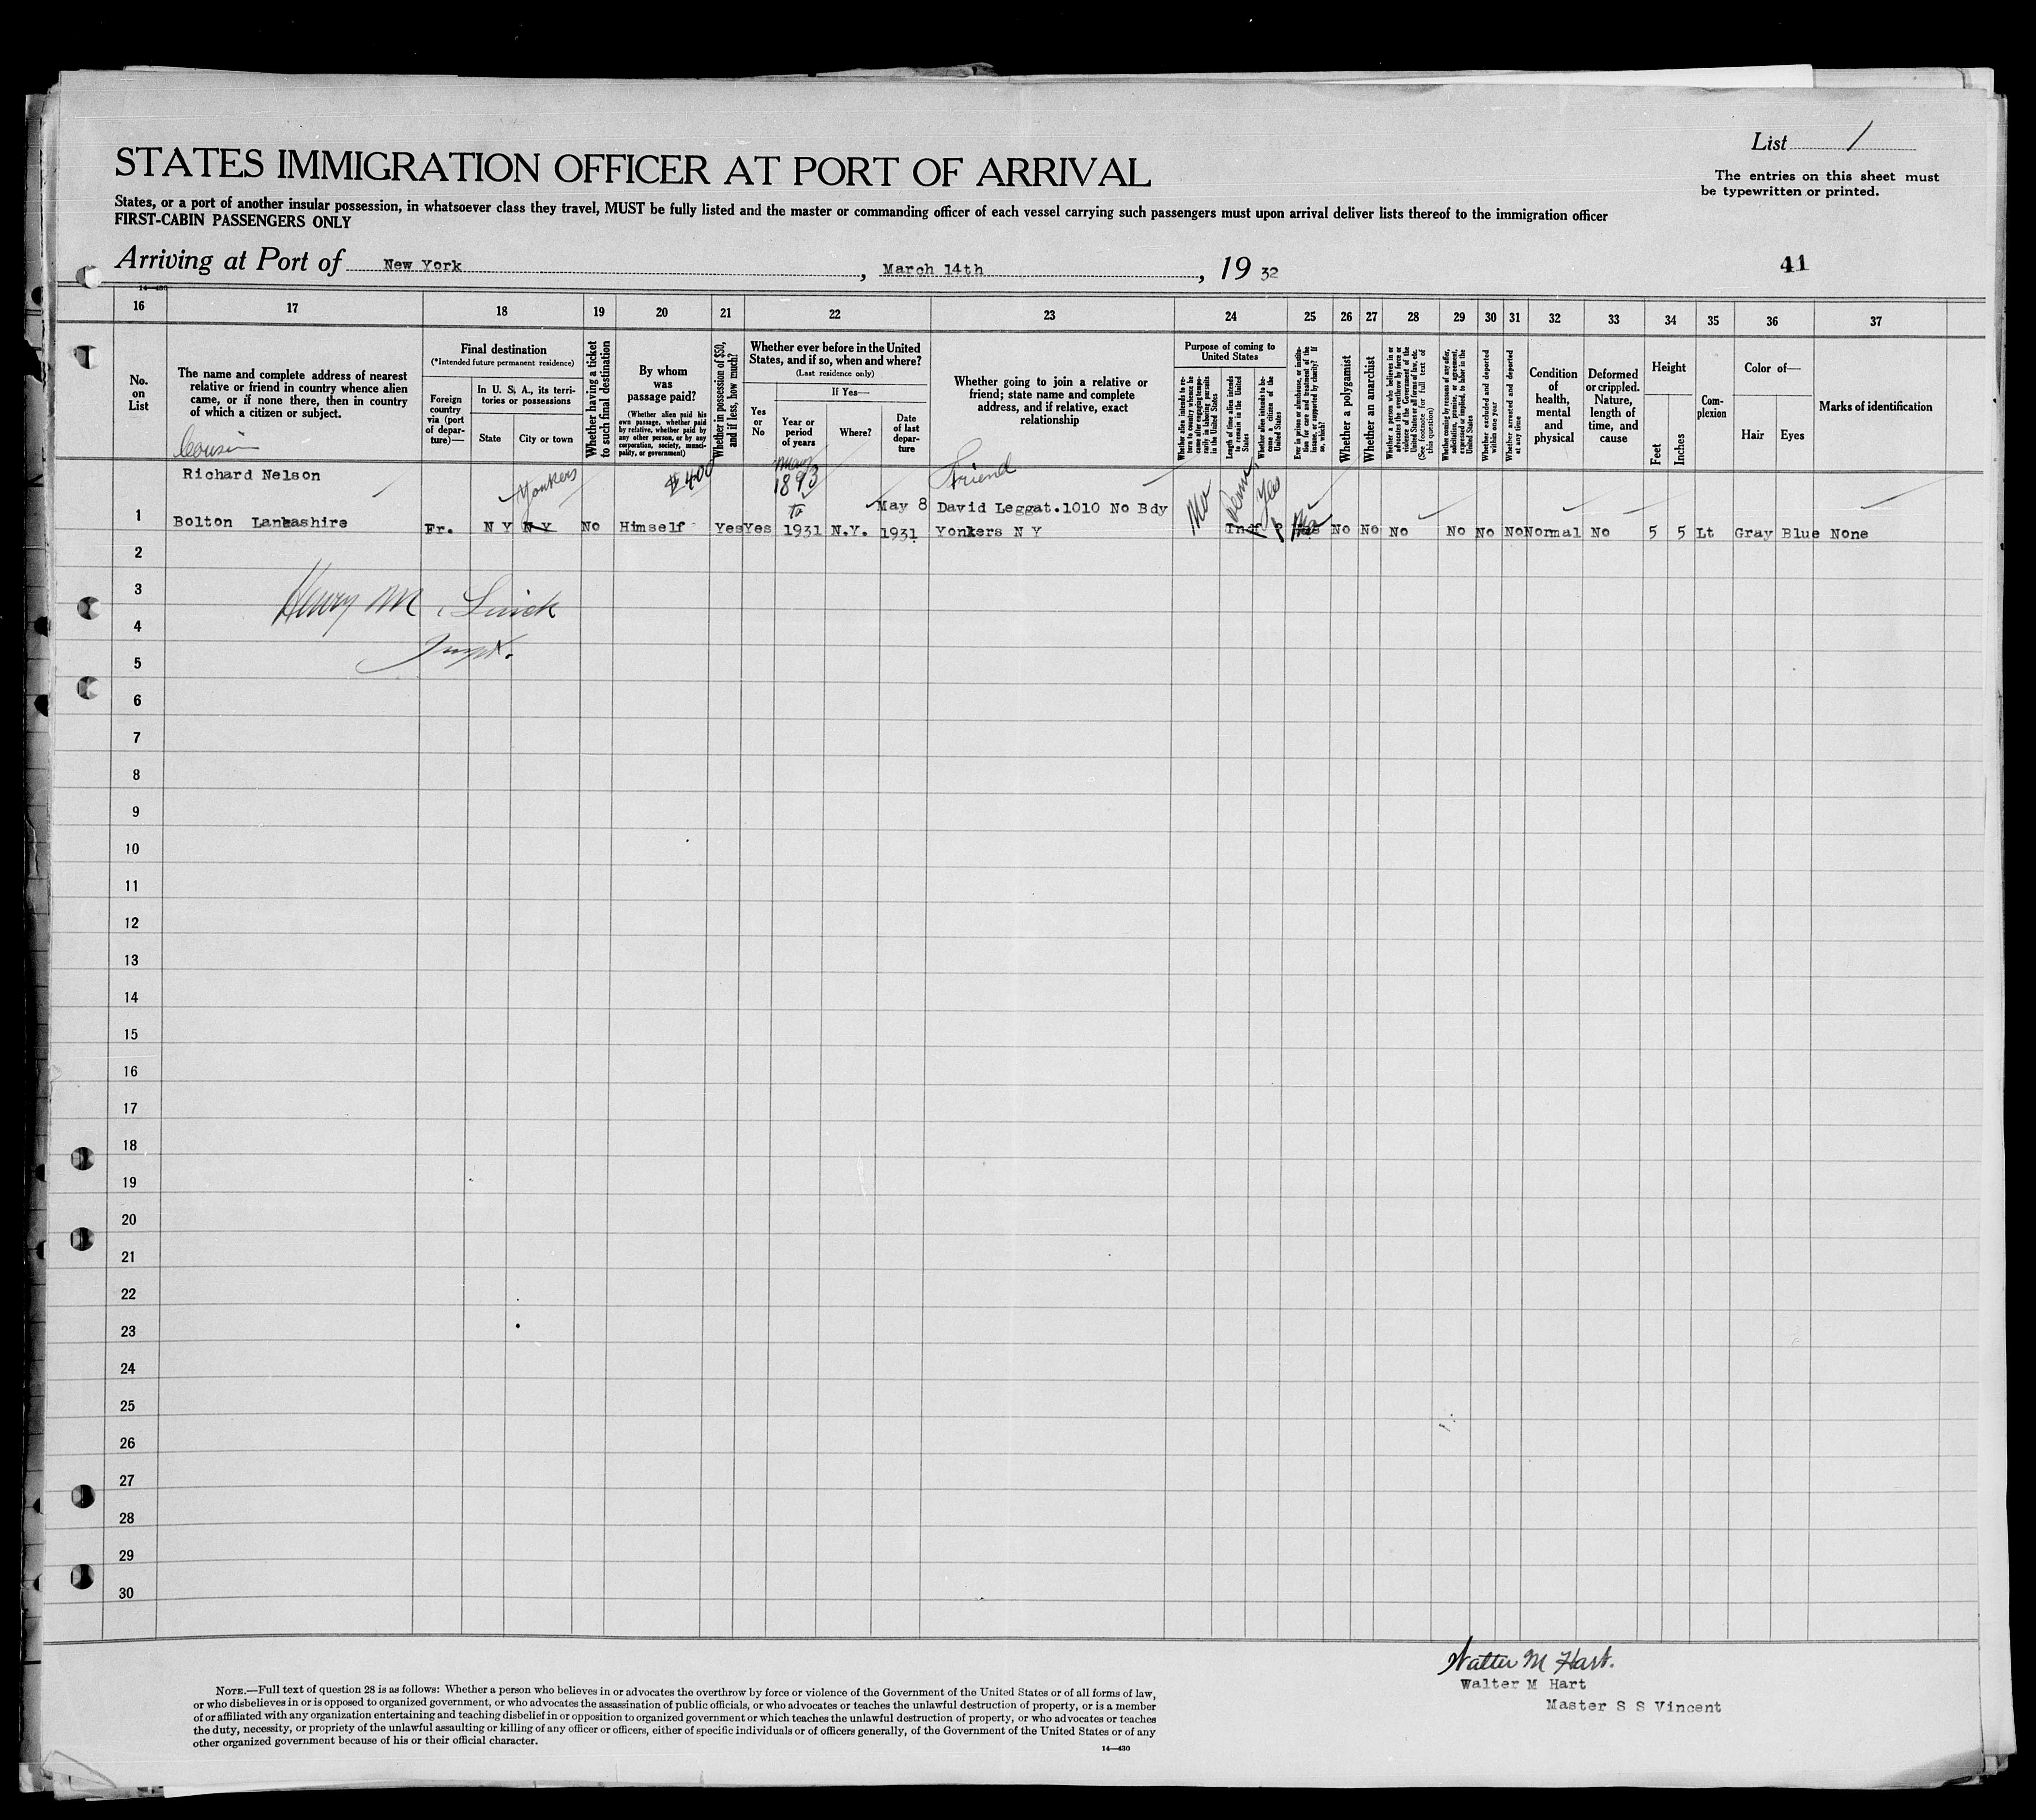 List 1
The entries on this sheet must
be typewritten or printed.
STATES IMMIGRATION OFFICER AT PORT OF ARRIVAL
States, or a port of another insular possession, in whatsoever class they travel, MUST be fully listed and the master or commanding officer of each vessel carrying such passengers must upon arrival deliver lists thereof to the immigration officer
FIRST-CABIN PASSENGERS ONLY
Arriving at Port of New York, March 14th, 19 32
41
14—430
16 17 18 19 20 21 22 23 24 25 26 27 28 29 30 31 32 33 34 35 36 37
No.
on
List
The name and complete address of nearest
relative or friend in country whence alien
came, or if none there, then in country
of which a citizen or subject.
Final destination
(*Intended future permanent residence)
Foreign
country
via (port
of depar-
ture)—
In U. S. A., its terri-
tories or possessions
State
City or town
Whether having a ticket
to such final destination
By whom
was
passage paid?
(Whether alien paid his
own passage, whether paid
by relative, whether paid by
any other person, or by any
corporation, society, munici-
pality, or government)
Whether in possession of $50,
and if less, how much?
Whether ever before in the United
States, and if so, when and where?
(Last residence only)
Yes
or
No
If Yes—
Year or
period
of years
Where?
Date
of last
depar-
ture
Whether going to join a relative or
friend; state name and complete
address, and if relative, exact
relationship
Purpose of coming to
United States
Whether alien intends to re-
turn to country whence he
came after engaging tempo-
rarily in laboring pursuits
in the United States
Length of time alien intends
to remain in the United
States
Whether alien intends to be-
come a citizen of the
United States
Ever in prison or almshouse, or institu-
tion for care and treatment of the
insane, or supported by charity? If
so, which?
Whether a polygamist
Whether an anarchist
Whether a person who believes in or
advocates the overthrow by force or
violence of the Government of the
United States or all forms of law, etc.
(See footnote for full text of
this question)
Whether coming by reasons of any offer,
solicitation, promise, or agreement,
expressed or implied, to labor in the
United States
Whether excluded and deported
within one year
Whether arrested and deported
at any time
Condition
of
health,
mental
and
physical
Deformed
or crippled.
Nature,
length of
time, and
cause
Height
Feet
Inches
Com-
plexion
Color of—
Hair
Eyes
Marks of identification
Cousin
Richard Nelson Yonkers $400 May 1893 to Friend
May 8 David Leggat.1010 No Bdy No Yes
1 Bolton Lancashire Fr. N Y N Y No Himself Yes Yes 1931 N.Y. 1931 Yonkers N Y No No No No No No No Normal No 5 5 Lt Gray Blue None
2
3
Henry M
4
5
6
7
8
9
10
11
12
13
14
15
16
17
18
19
20
21
22
23
24
25
26
27
28
29
30
Walter M Hart.
Walter M Hart
Master S S Vincent
NOTE.—Full text of question 28 is as follows: Whether a person who believes in or advocates the overthrow by force or violence of the Government of the United States or of all forms of law,
or who disbelieves in or is opposed to organized government, or who advocates the assassination of public officials, or who advocates or teaches the unlawful destruction of property, or is a member
of or affiliated with any organization entertaining and teaching disbelief in or opposition to organized government or which teaches the unlawful destruction of property, or who advocates or teaches
the duty, necessity, or propriety of the unlawful assaulting or killing of any officer or officers, either of specific individuals or of officers generally, of the Government of the United States or of any
other organized government because of his or their official character.
14—430